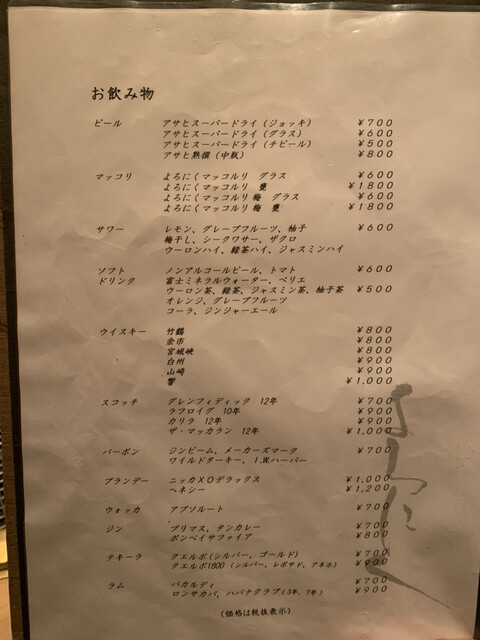 お飲み物
ビール アサヒスーパードライ（ジョッキ） ¥700
アサヒスーパードライ（グラス） ¥600
アサヒスーパードライ（チビール） ¥500
アサヒ熟撰（中瓶） ¥800
マッコリ よろにくマッコルリ グラス ¥600
よろにくマッコルリ 甕 ¥1800
よろにくマッコルリ 梅 グラス ¥600
よろにくマッコルリ 梅 甕 ¥1800
サワー レモン、グレープフルーツ、柚子 ¥600
梅干し、シークワサー、ザクロ
ウーロンハイ、緑茶ハイ、ジャスミンハイ
ソフト ノンアルコールビール、トマト ¥600
ドリンク 富士ミネラルウォーター、ペリエ
ウーロン茶、緑茶、ジャスミン茶、柚子茶 ¥500
オレンジ、グレープフルーツ
コーラ、ジンジャーエール
ウイスキー 竹鶴 ¥800
余市 ¥800
宮城峡 ¥800
白州 ¥900
山崎 ¥900
響 ¥1,000
スコッチ グレンフィディック 12年 ¥700
ラフロイグ 10年 ¥900
カリラ 12年 ¥900
ザ・マッカラン 12年 ¥1,000
バーボン ジンビーム、メーカーズマーク ¥700
ワイルドターキー、I.W.ハーパー
ブランデー ニッカXOデラックス ¥1,000
ヘネシー ¥1,200
ウォッカ アブソルート ¥700
ジン プリマス、タンカレー ¥700
ボンベイサファイア ¥800
テキーラ クエルボ（シルバー、ゴールド） ¥700
クエルボ1800（シルバー、レポサド、アネホ） ¥900
ラム バカルディ ¥700
ロンサカパ、ハバナクラブ（3年、7年） ¥900
（価格は税抜表示）
よろにく